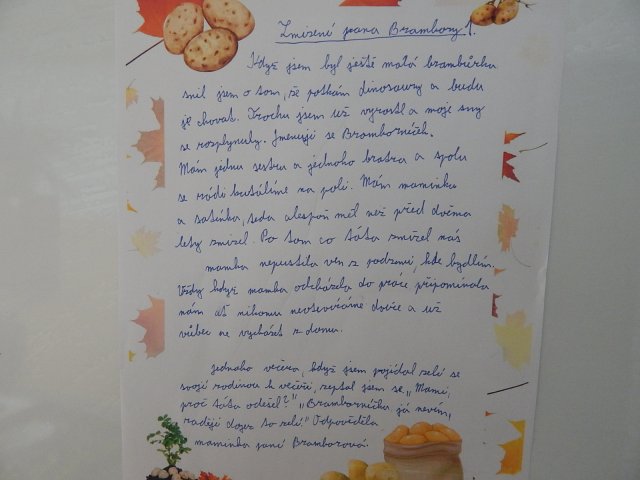 Zmizení pana Brambory 1.
Když jsem byl ještě malá brambůrka
snil jsem o tom, že potkám dinosaury a budu
je chovat. Trochu jsem už vyrostl a moje sny
se rozplynuly. Jmenuji se Bramborníček.
Mám jednu sestru a jednoho bratra a spolu
se rádi kutálíme na poli. Mám maminku
a tatínka, teda alespoň měl než před dvěma
lety zmizel. Po tom co táta zmizel nás
mamka nepustila ven z podzemí, kde bydlím.
Vždy když mamka odcházela do práce připomínala
nám ať nikomu neotevíráme dveře a už
vůbec ne vycházet z domu.
Jednoho večera, když jsem pojídal zelí se
svojí rodinou k večeři, zeptal jsem se „Mami,
proč táta odešel?" „Bramborníčku já nevím,
raději dojez to zelí." Odpověděla
maminka paní Bramborová.